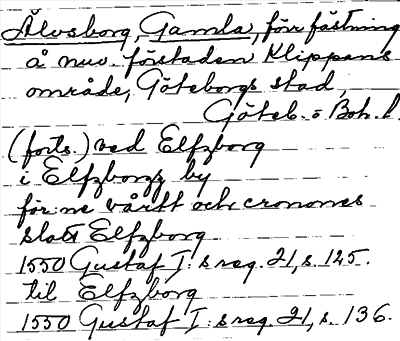 Älvsborg, Gamla, förr fästning
å nuv. förstaden Klippans
område, Göteborgs stad,
Göteb. o Boh. l.
(forts.) ved Elfzborg
i Elfzborgz by
för:ne vårtt och cronones
slott Elfzborg
1550 Gustaf I:s reg. 21, s. 125.
til Elfzborg
1550 Gustaf I:s reg. 21, s. 136.